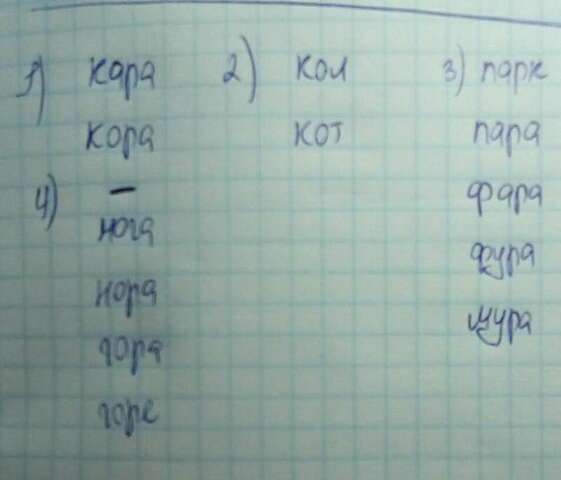 1) кара
кора
2) кол
кот
3) парк
пара
фара
фура
4) –
нога
нора
гора
горе